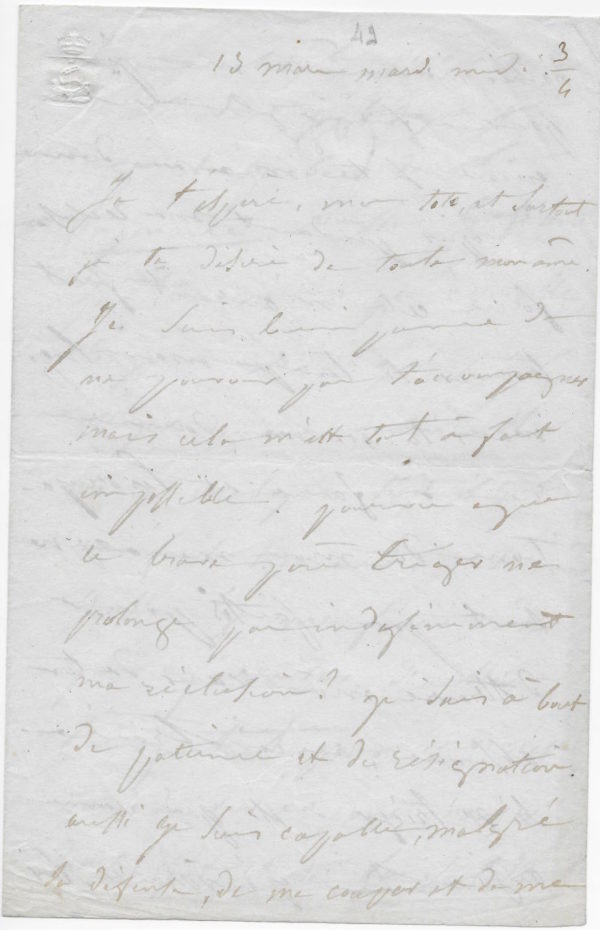 42
13 mars mardi midi 3/4
Je t'espère, mon toto, et surtout
je te désire de toute mon âme.
Je suis bien jamie de
ne pouvoir pas t'accompagner
mais cela m'est tout à fait
impossible. pourvu que
ce brave père triger ne
prolonge pas indéfiniment
ma réclusion? je suis à bout
de patience et de résignation
aussi je suis capable, malgré
la défense, de me couper et de me